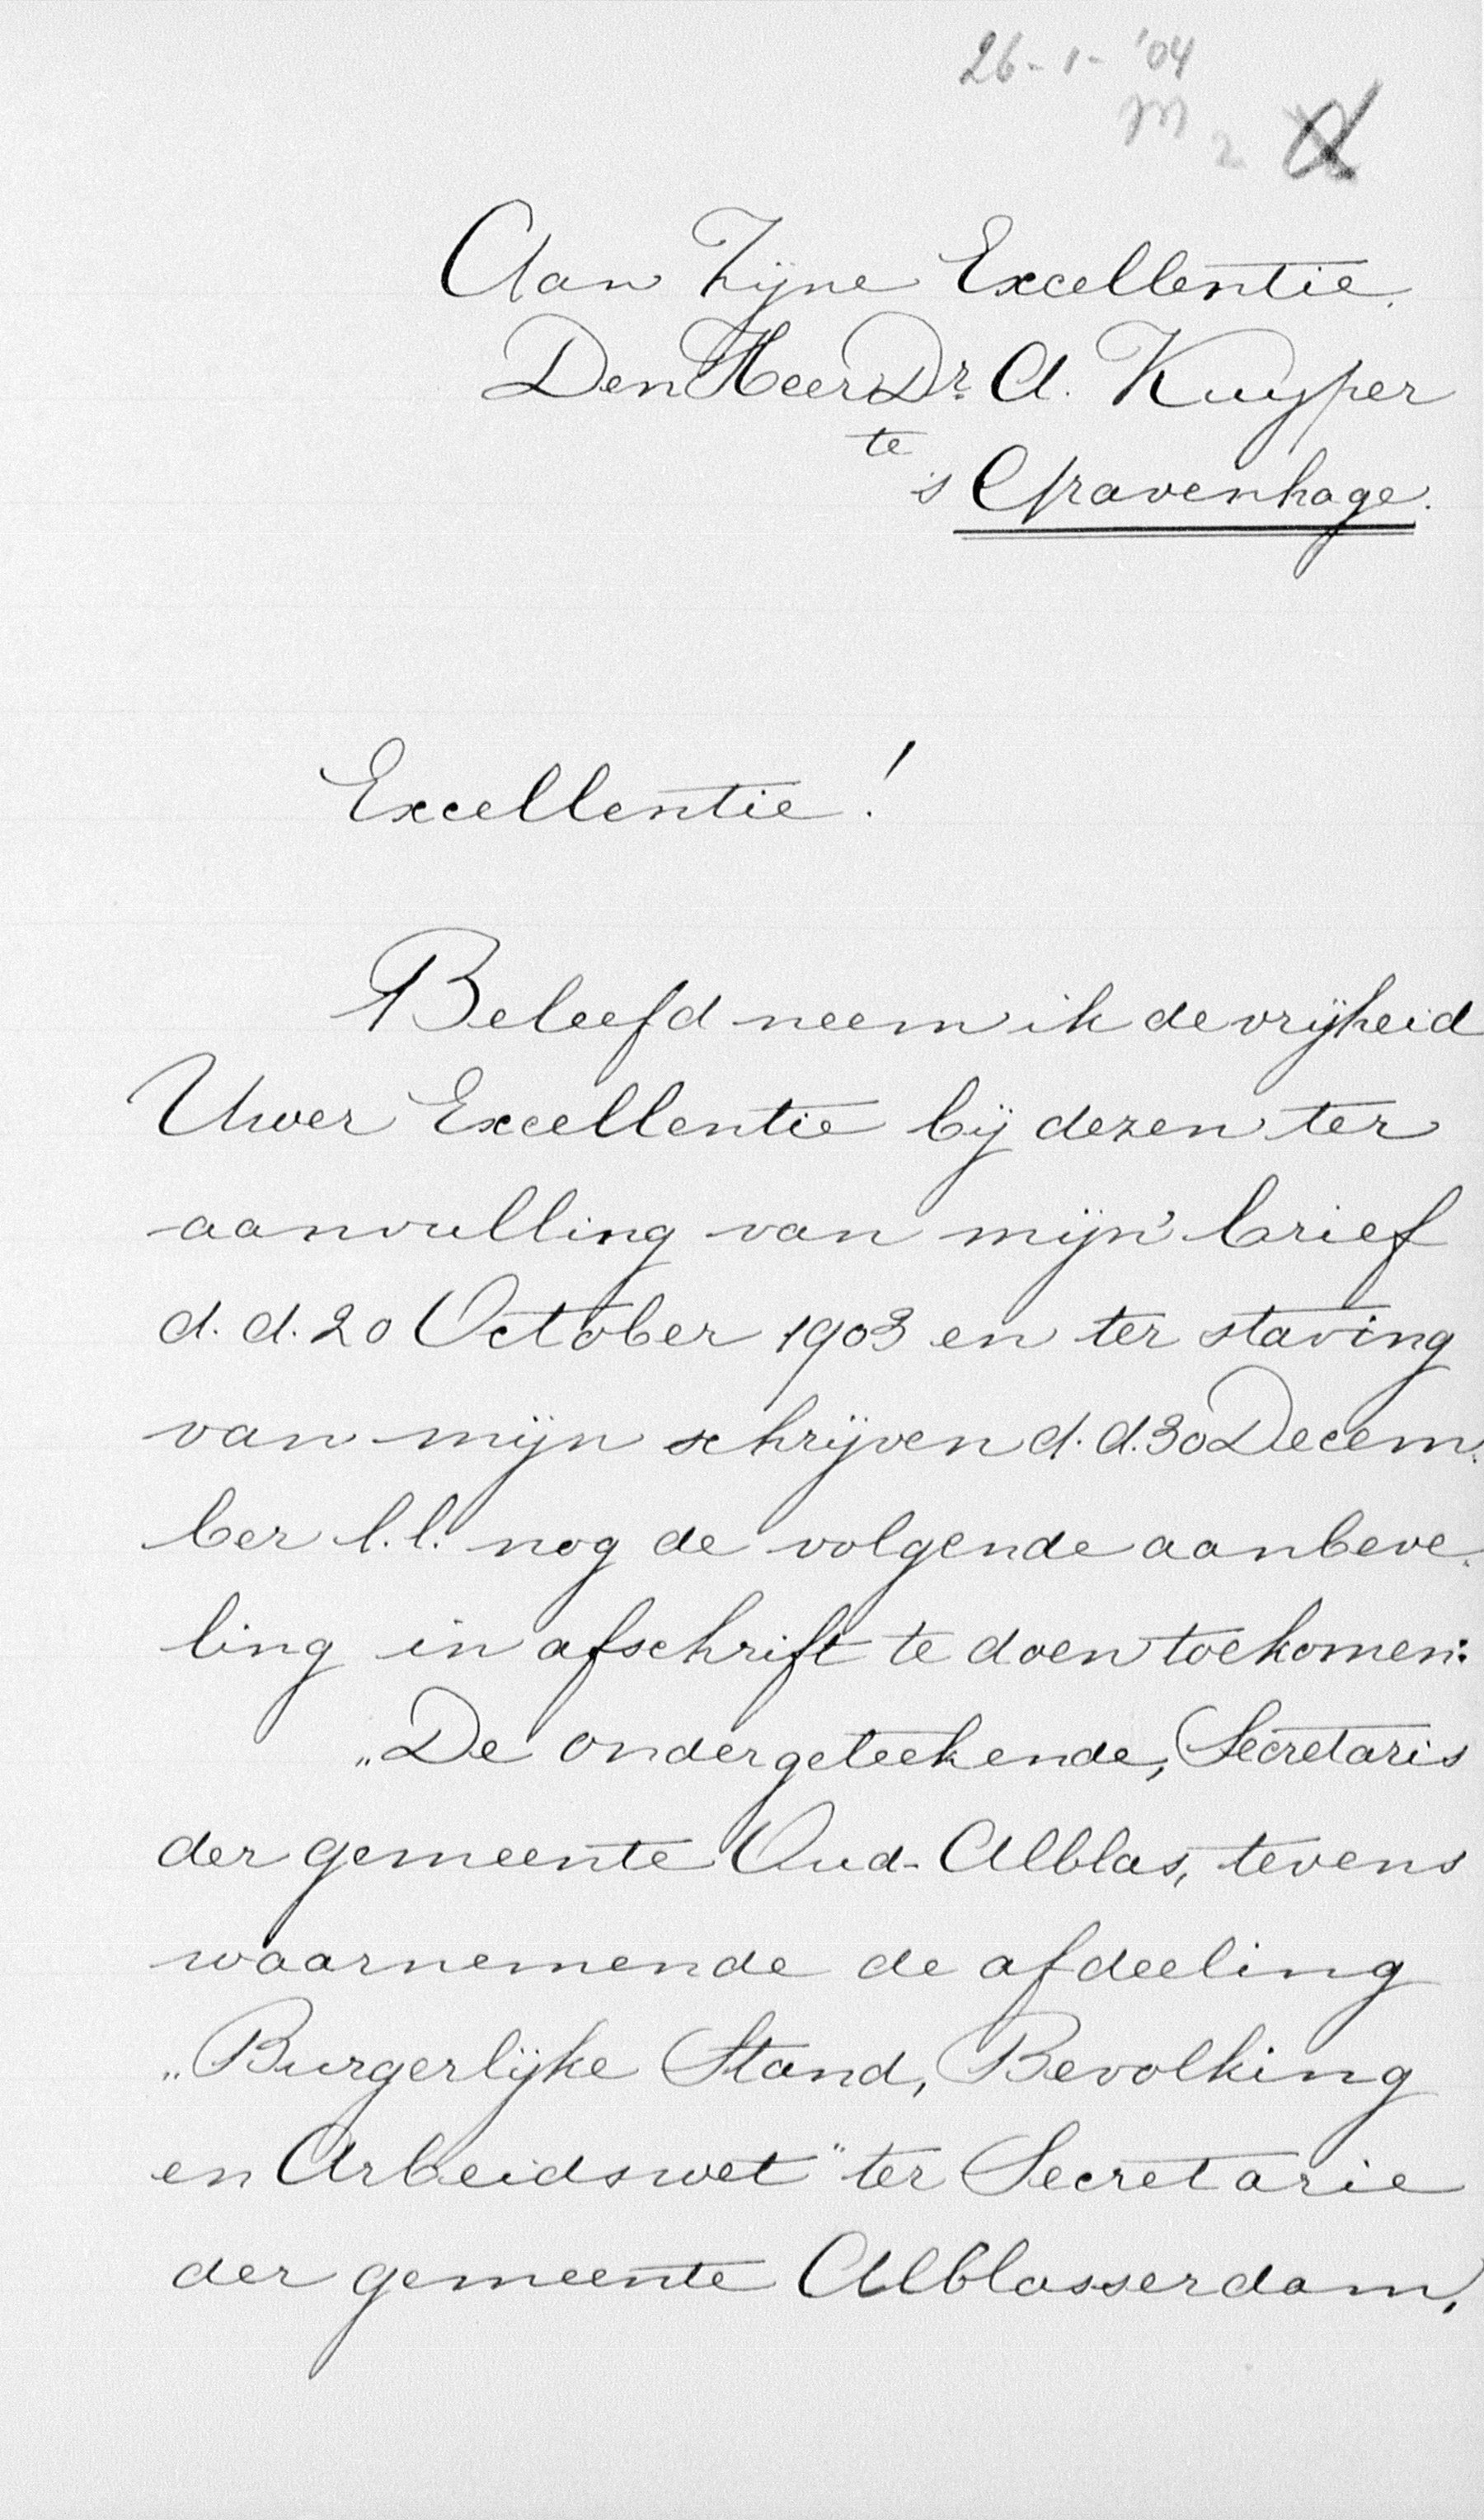 26-1-'04
m 2
Aan Zijne Excellentie.
Den Heer Dr. A. Kuyper
te
's Gravenhage.
Excellentie!
Beleefd neem ik de vrijheid
Uwer Excellentie bij dezen ter
aanvulling van mijn brief
d.d. 20 October 1903 en ter staving
van mijn schrijven d.d. 30 Decem-
ber l.l. nog de volgende aanbeve-
ling in afschrift te doen toekomen:
„De ondergeteekende, Secretaris
der gemeente Oud-Alblas, tevens
waarnemende de afdeeling
„Burgerlijke Stand, Bevolking
en Arbeidswet" ter Secretarie
der gemeente Alblasserdam,